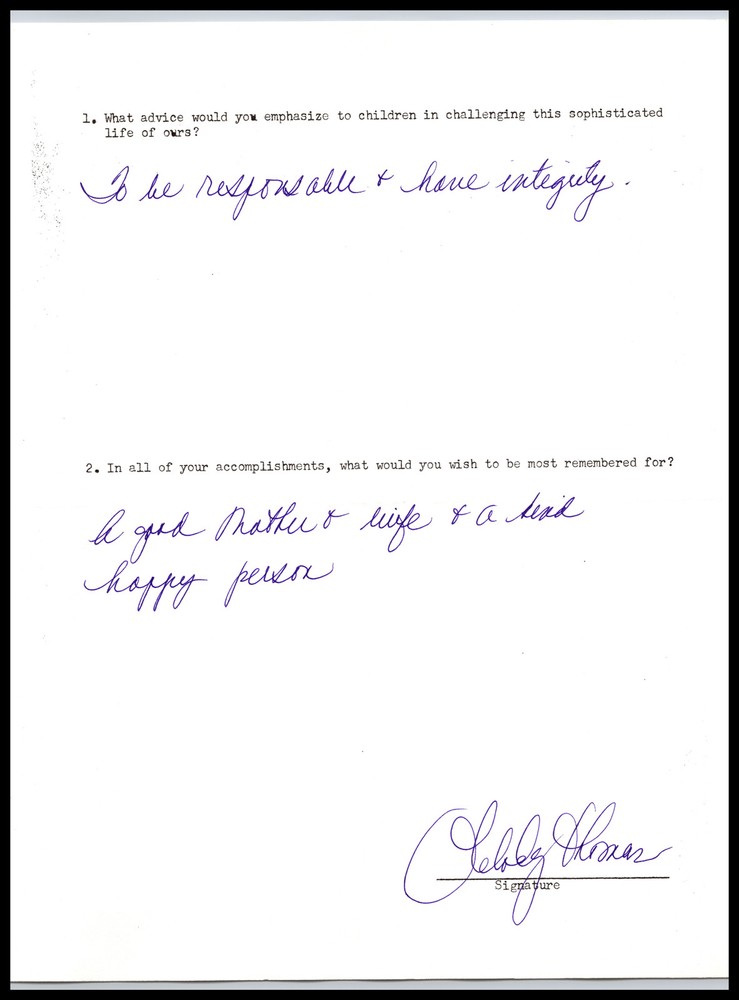 1. What advice would you emphasize to children in challenging this sophisticated
life of ours?
To be responsable & have integrity.
2. In all of your accomplishments, what would you wish to be most remembered for?
A good Mother & wife & a kind
happy person
Melody Thomas
Signature